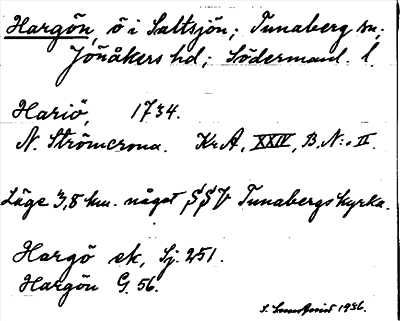 Hargön, ö i Saltsjön; Tunaberg sn;
Jönåkers hd; Södermanl. l.
Hariö, 1734.
N. Strömcrona. Kr.A, XXIV, B, N:o II.
Läge 3,8 km. något SSV Tunabergs kyrka.
Hargö ek, Sj. 251.
Hargön G. 56.
1936.